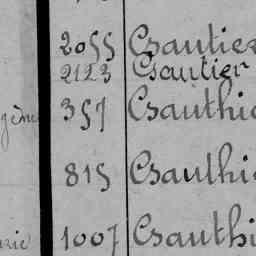 2055 Gautier
2123 Gautier
gène 357 Gauthi
815 Gauthi
rie 1007 Gauthi